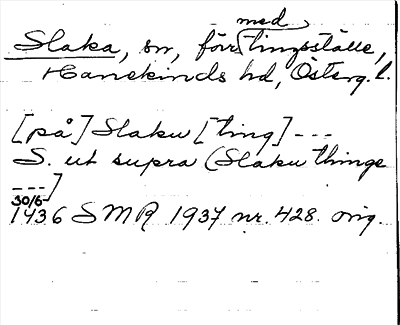 Slaka, sn, förr med tingsställe,
Hanekinds hd, Österg. l.
[på] Slaku [ting] ---
S. ut supra (Slaku thinge
---]
30/6
1436 SMR 1937 nr. 428. orig.